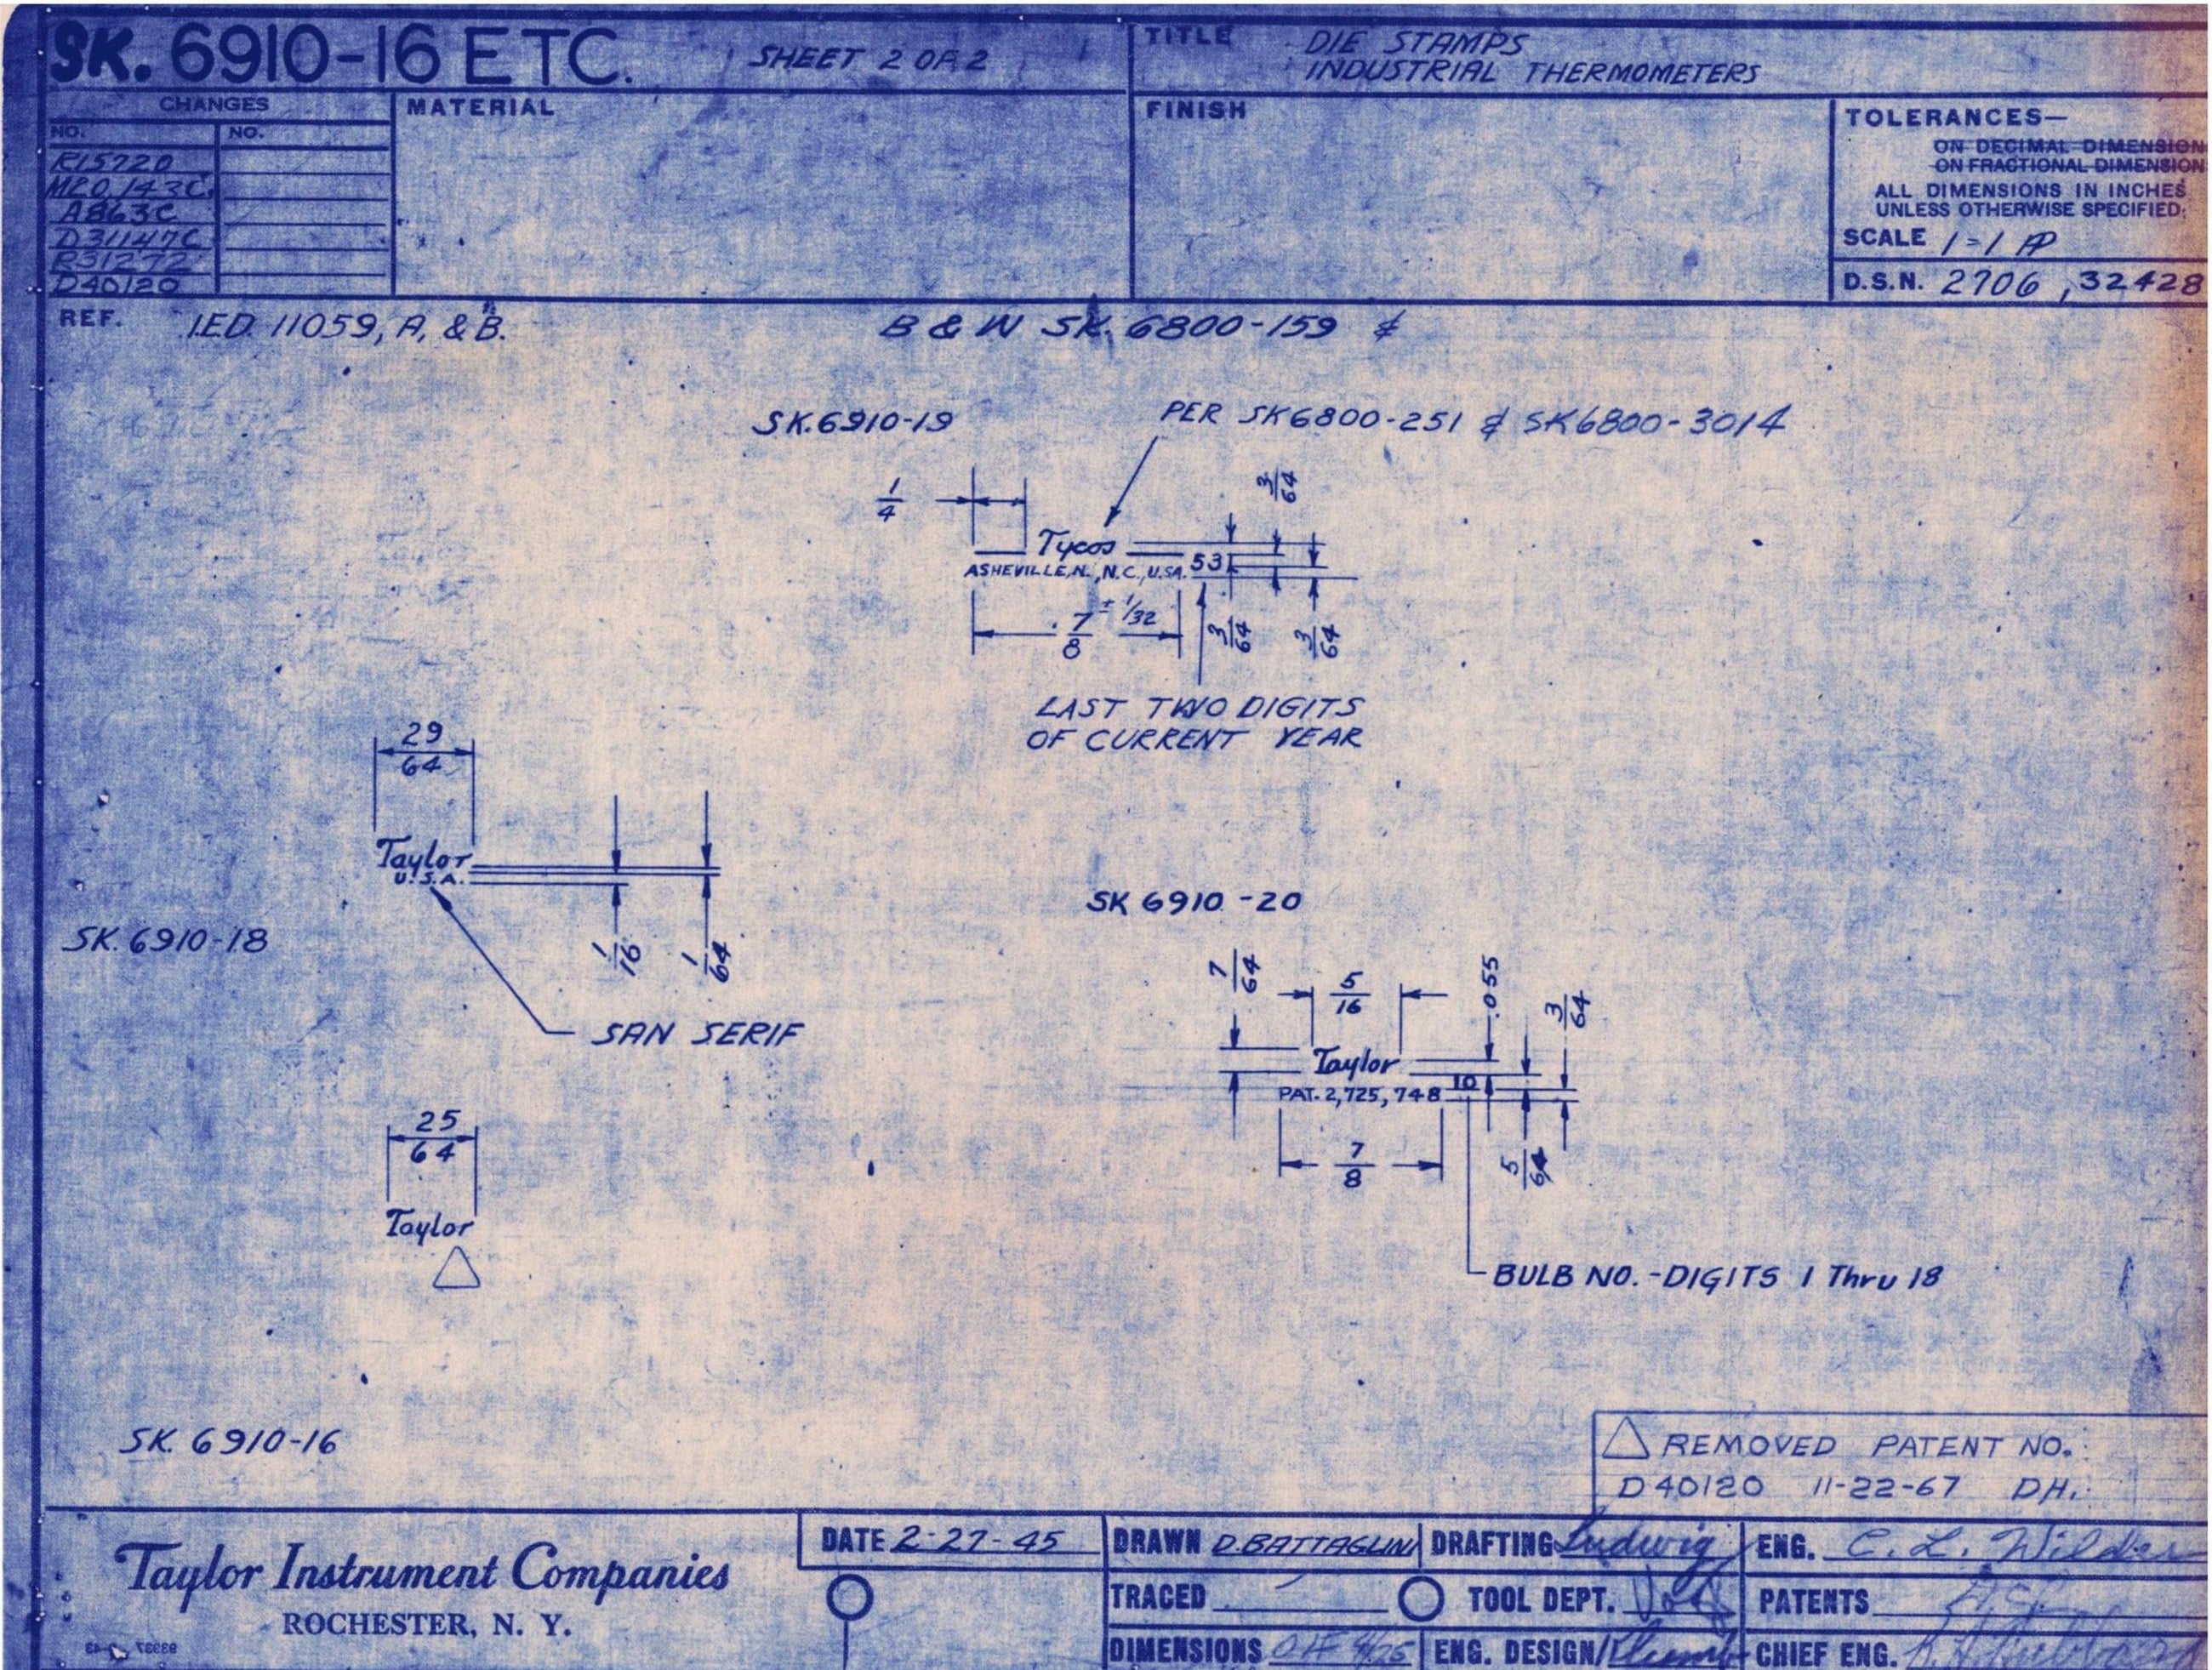 SK. 6910-16 ETC. SHEET 2 OF 2
TITLE DIE STAMPS
INDUSTRIAL THERMOMETERS
CHANGES
NO. NO.
R15720
M20,143C
A863C
D31147C
R31272
D40120
MATERIAL
FINISH
TOLERANCES—
ON DECIMAL DIMENSION
ON FRACTIONAL DIMENSION
ALL DIMENSIONS IN INCHES
UNLESS OTHERWISE SPECIFIED:
SCALE 1=1
D.S.N. 2706, 32428
REF. I.E.D. 11059, A, & B. B & W SK. 6800-159 &
SK.6910-19
PER SK6800-251 & SK6800-3014
1/4
3/64
Tycos
ASHEVILLE, N.C., U.S.A. 53
7/8 ± 1/32
3/64
3/64
LAST TWO DIGITS
OF CURRENT YEAR
29/64
Taylor
U.S.A.
1/16
1/64
SK. 6910-18
SAN SERIF
SK 6910-20
7/64
5/16
.055
3/64
Taylor
10
PAT. 2,725,748
7/8
5/64
BULB NO.-DIGITS 1 Thru 18
25/64
Taylor
SK. 6910-16
REMOVED PATENT NO.
D40120 11-22-67 DH.
Taylor Instrument Companies
ROCHESTER, N. Y.
DATE 2-27-45
DRAWN D.BATTAGLINI
DRAFTING Ludwig
ENG. C. L. Wilder
TRACED
TOOL DEPT.
PATENTS
DIMENSIONS
ENG. DESIGN
CHIEF ENG.